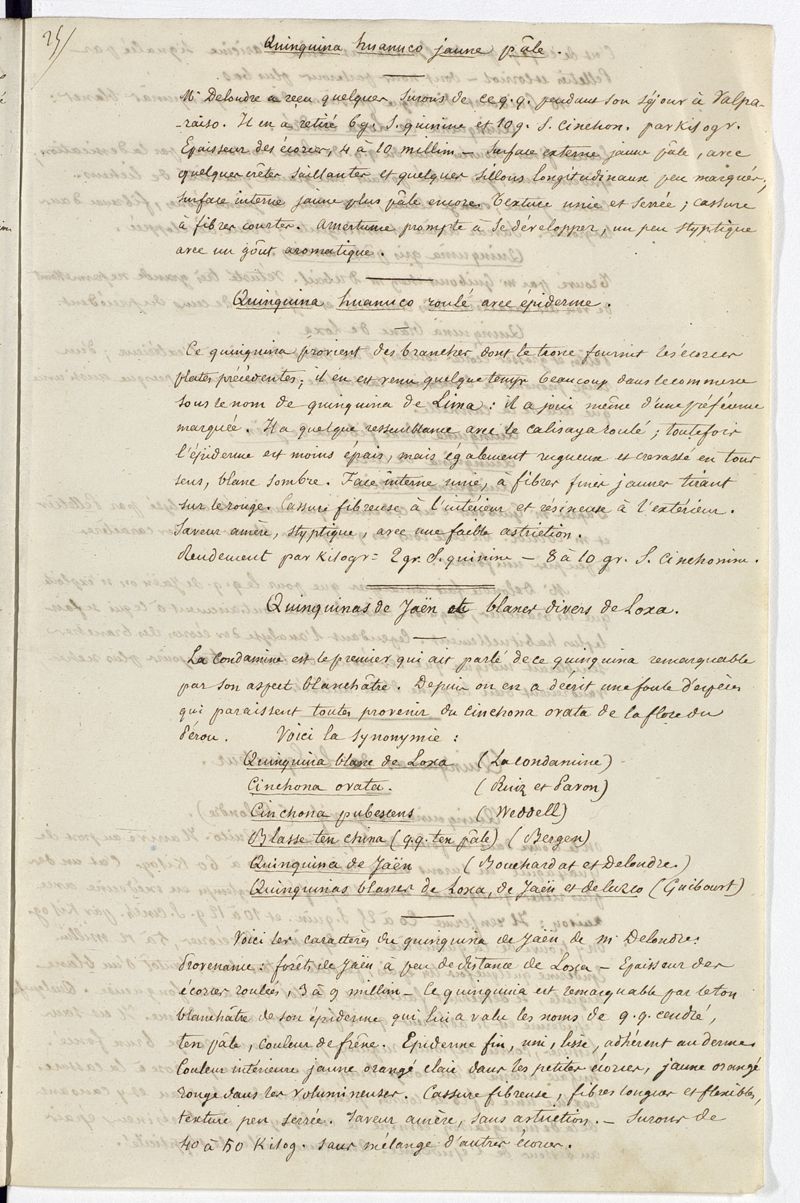 25/
Quinquina huanuco jaune pâle.
Mr Delondre a reçu quelques surons de ce q.q. pendant son séjour à Valpa-
-raiso. Il en a retiré 6 g. S. quinine et 10 g. S. Cinchon. par Kilogr.
Epaisseur des écorces, 4 à 10 millim — surface externe jaune pâle, avec
quelques crêtes saillantes et quelques sillons longitudinaux peu marqués,
surface interne jaune plus pâle encore. Texture unie et serrée; cassure
à fibres courtes. Amertume prompte à se développer, un peu styptique
avec un goût aromatique.
Quinquina huanuco roulé avec épiderme.
Ce quinquina provient des branches dont le tronc fournit les écorces
plates précédentes; il en est venu quelque temps beaucoup dans le commerce
sous le nom de quinquina de Lima: il a joui même d'une préférence
marquée. Il a quelque ressemblance avec le calisaya roulé; toutefois
l'épiderme est moins épais, mais également rugueux et crevassé en tous
sens, blanc sombre. Face interne unie, à fibres fines jaunes tirant
sur le rouge. Cassure fibreuse à l'intérieur et résineuse à l'extérieur.
Saveur amère, styptique, avec une faible astriction.
Rendement par Kilogr = 2 gr. S. quinine — 8 à 10 gr. S. Cinchonine.
Quinquinas de Jaën et blancs divers de Loxa.
La Condamine est le premier qui ait parlé de ce quinquina remarquable
par son aspect blanchâtre. Depuis on en a décrit une foule d'espèces
qui paraissent toutes provenir du cinchona ovata de la flore du
Pérou. Voici la synonymie:
Quinquina blanc de Loxa (La Condamine)
Cinchona ovata. (Ruiz et Pavon)
Cinchona pubescens (Weddell)
Blasse ten china (q.q. ten pâle) (Bergen)
Quinquina de Jaën (Bouchardat et Delondre.)
Quinquinas blancs de Loxa, de Jaën et de Cuzco (Guibourt)
Voici les caractères du quinquina de Jaën de Mr Delondre:
Provenance: forêts de Jaën à peu de distance de Loxa — Epaisseur des
écorces roulées, 3 à 9 millim — Ce quinquina est remarquable par le ton
blanchâtre de son épiderme qui lui a valu les noms de q.q. cendré,
ten pâle, couleur de frêne. Epiderme fin, uni, lisse, adhérent au derme.
Couleur intérieure jaune orangé clair dans les petites écorces, jaune orangé
rouge dans les volumineuses. Cassure fibreuse, fibres longues et flexibles,
texture peu serrée. Saveur amère, sans astriction. — Surons de
40 à 50 Kilog. sans mélange d'autres écorces.